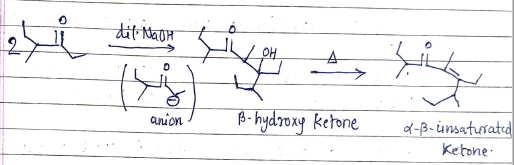 O O O
2 dil·NaOH OH Δ
O
⊖
anion β-hydroxy ketone α-β-unsaturated
ketone.